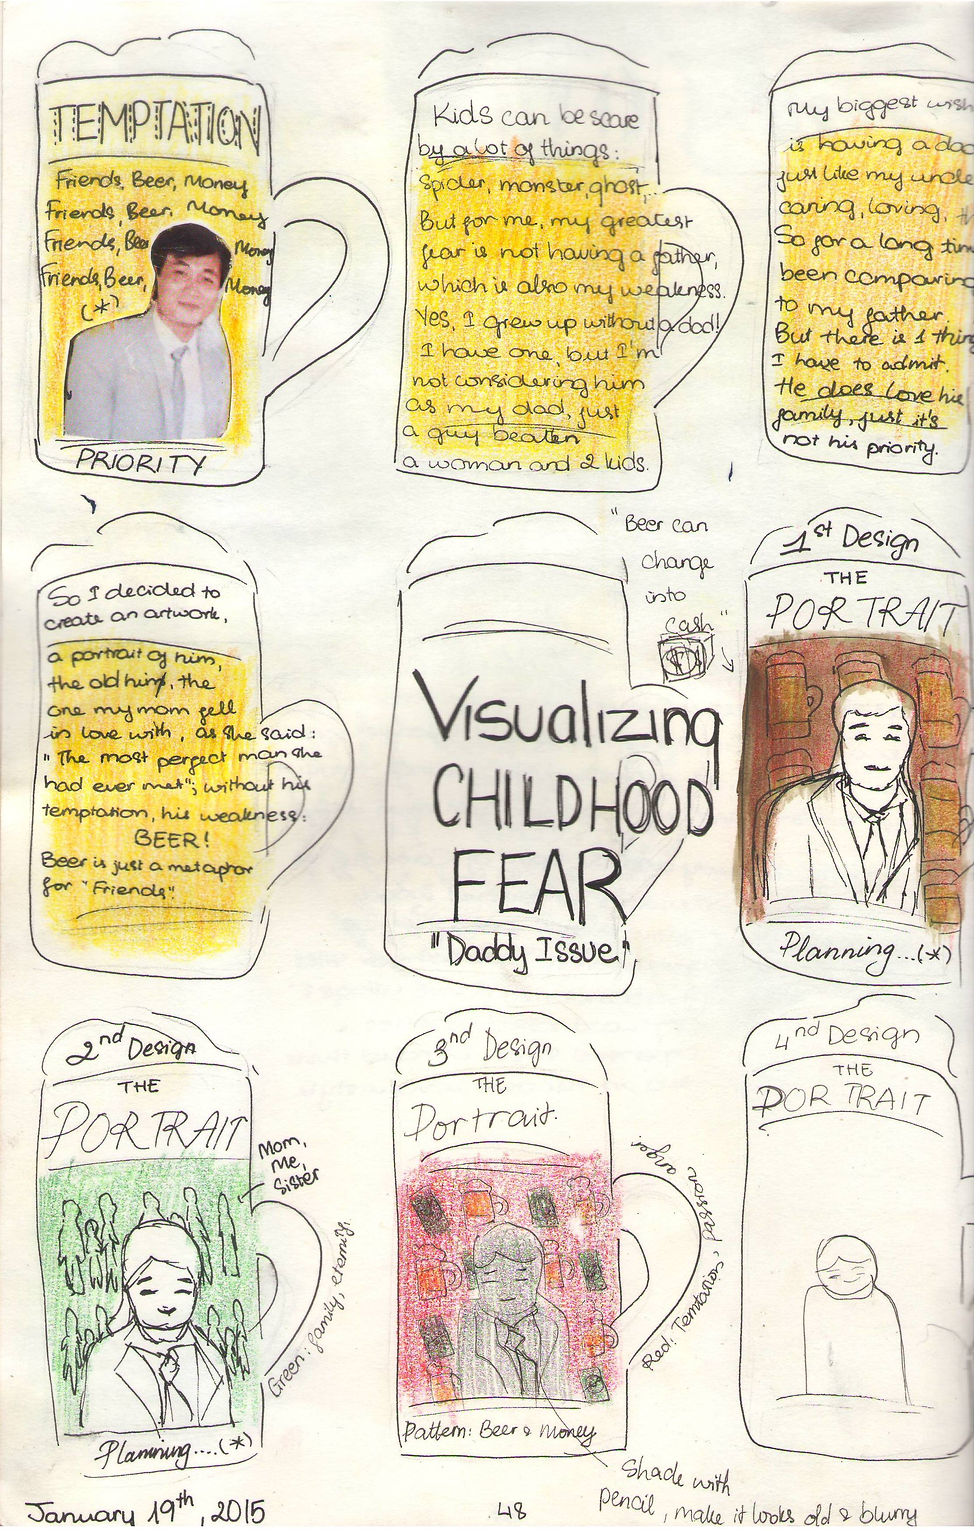 TEMPTATION
Friends, Beer, Money
Friends, Beer, Money
Friends, Beer Money
Friends, Beer, Money
(*)
PRIORITY
Kids can be scare
by a lot of things:
Spider, monster, ghost,..
But for me, my greatest
fear is not having a father,
which is also my weakness.
Yes, I grew up without a dad!
I have one, but I'm
not considering him
as my dad, just
a guy beaten
a woman and 2 kids.
My biggest wish
is having a dad
just like my uncle
caring, loving,
So for a long time
been comparing
to my father.
But there is 1 thing
I have to admit.
He does love his
family, just it's
not his priority.
So I decided to
create an artwork,
a portrait of him,
the old him, the
one my mom fell
in love with, as she said:
"The most perfect man she
had ever met"; without his
temptation, his weakness:
BEER!
Beer is just a metaphor
for "Friends".
"Beer can
change
into
cash"
$1
Visualizing
CHILDHOOD
FEAR
"Daddy Issue"
1st Design
THE
PORTRAIT
Planning...(*)
2nd Design
THE
PORTRAIT
Mom,
Me,
Sister
Green: family, eternity
Planning....(*)
3rd Design
THE
Portrait.
Red: Temtations, passion, anger
Pattern: Beer & Money
Shade with
pencil, make it looks old & blurry
4nd Design
THE
PORTRAIT
January 19th, 2015
48